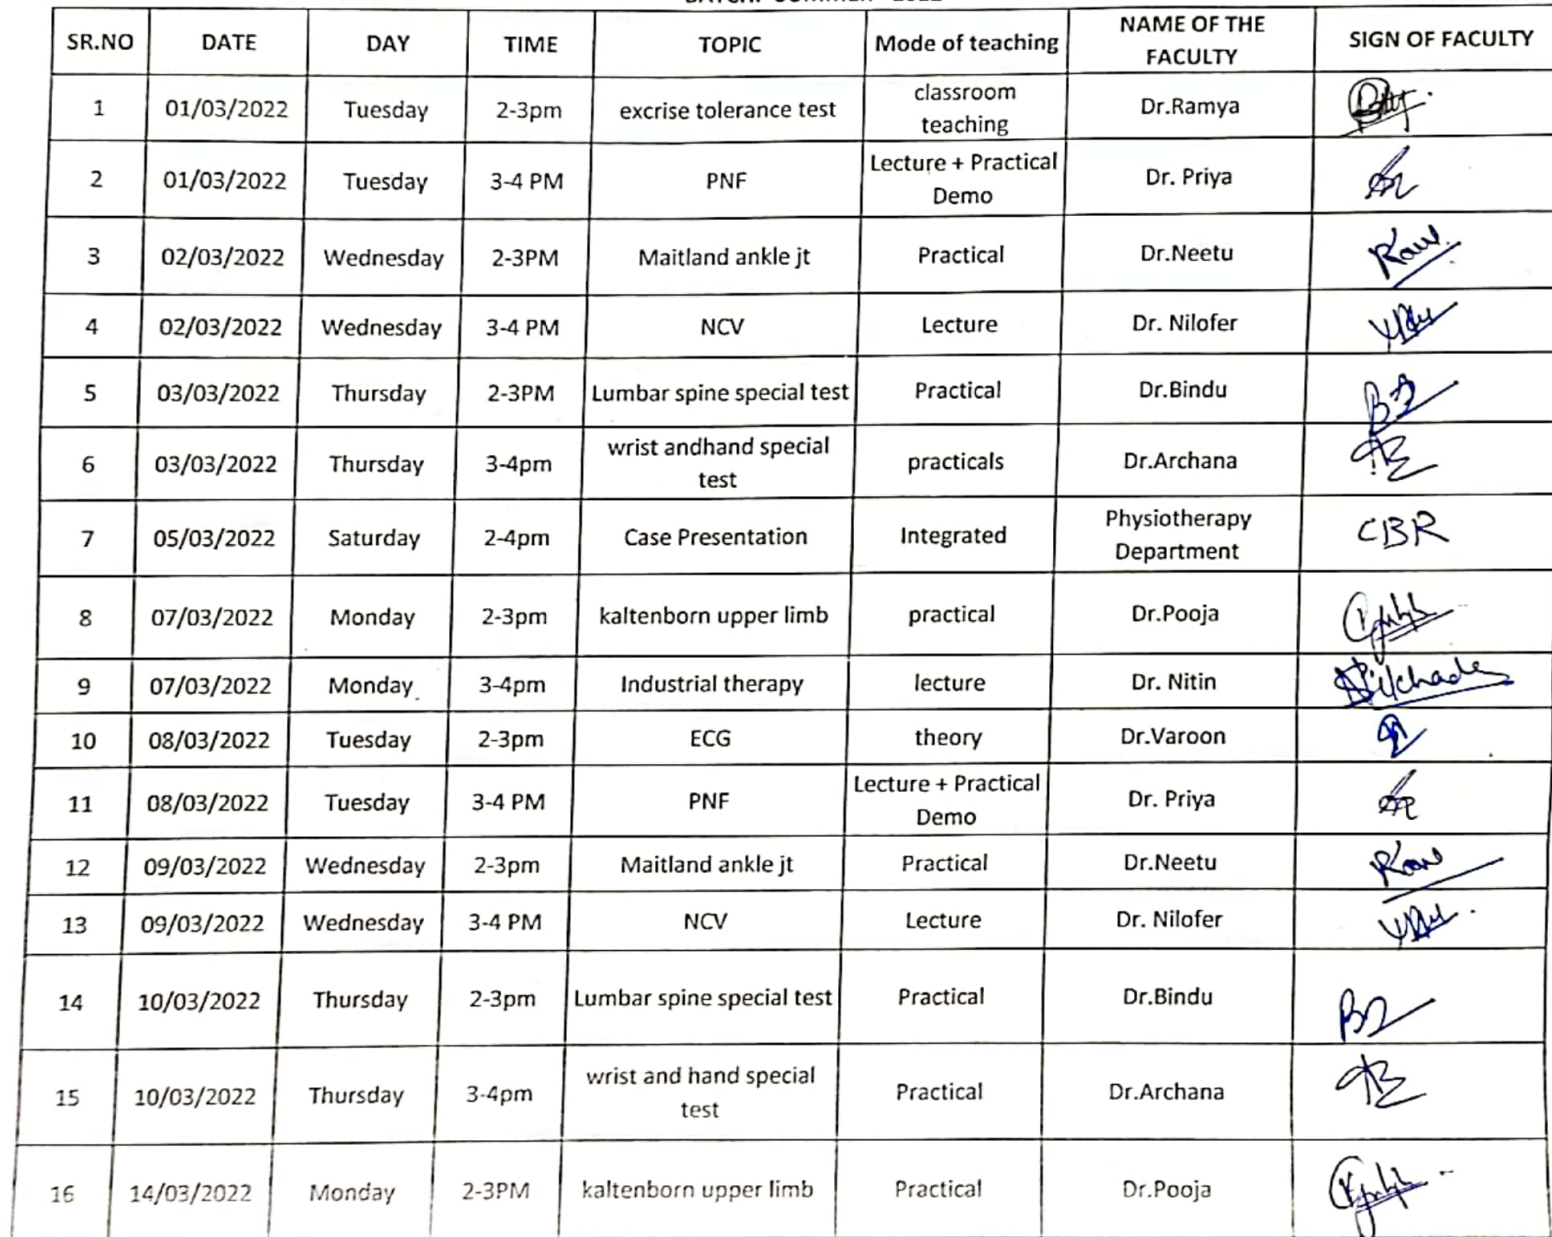 SR.NO DATE DAY TIME TOPIC Mode of teaching NAME OF THE FACULTY SIGN OF FACULTY
1 01/03/2022 Tuesday 2-3pm excrise tolerance test classroom teaching Dr.Ramya
2 01/03/2022 Tuesday 3-4 PM PNF Lecture + Practical Demo Dr. Priya
3 02/03/2022 Wednesday 2-3PM Maitland ankle jt Practical Dr.Neetu
4 02/03/2022 Wednesday 3-4 PM NCV Lecture Dr. Nilofer
5 03/03/2022 Thursday 2-3PM Lumbar spine special test Practical Dr.Bindu
6 03/03/2022 Thursday 3-4pm wrist andhand special test practicals Dr.Archana
7 05/03/2022 Saturday 2-4pm Case Presentation Integrated Physiotherapy Department CBR
8 07/03/2022 Monday 2-3pm kaltenborn upper limb practical Dr.Pooja
9 07/03/2022 Monday 3-4pm Industrial therapy lecture Dr. Nitin
10 08/03/2022 Tuesday 2-3pm ECG theory Dr.Varoon
11 08/03/2022 Tuesday 3-4 PM PNF Lecture + Practical Demo Dr. Priya
12 09/03/2022 Wednesday 2-3pm Maitland ankle jt Practical Dr.Neetu
13 09/03/2022 Wednesday 3-4 PM NCV Lecture Dr. Nilofer
14 10/03/2022 Thursday 2-3pm Lumbar spine special test Practical Dr.Bindu
15 10/03/2022 Thursday 3-4pm wrist and hand special test Practical Dr.Archana
16 14/03/2022 Monday 2-3PM kaltenborn upper limb Practical Dr.Pooja